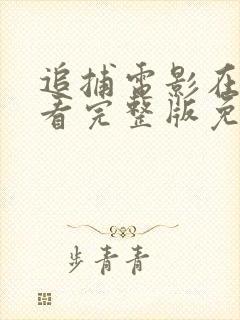 追捕电影在
看完整版免
步青青